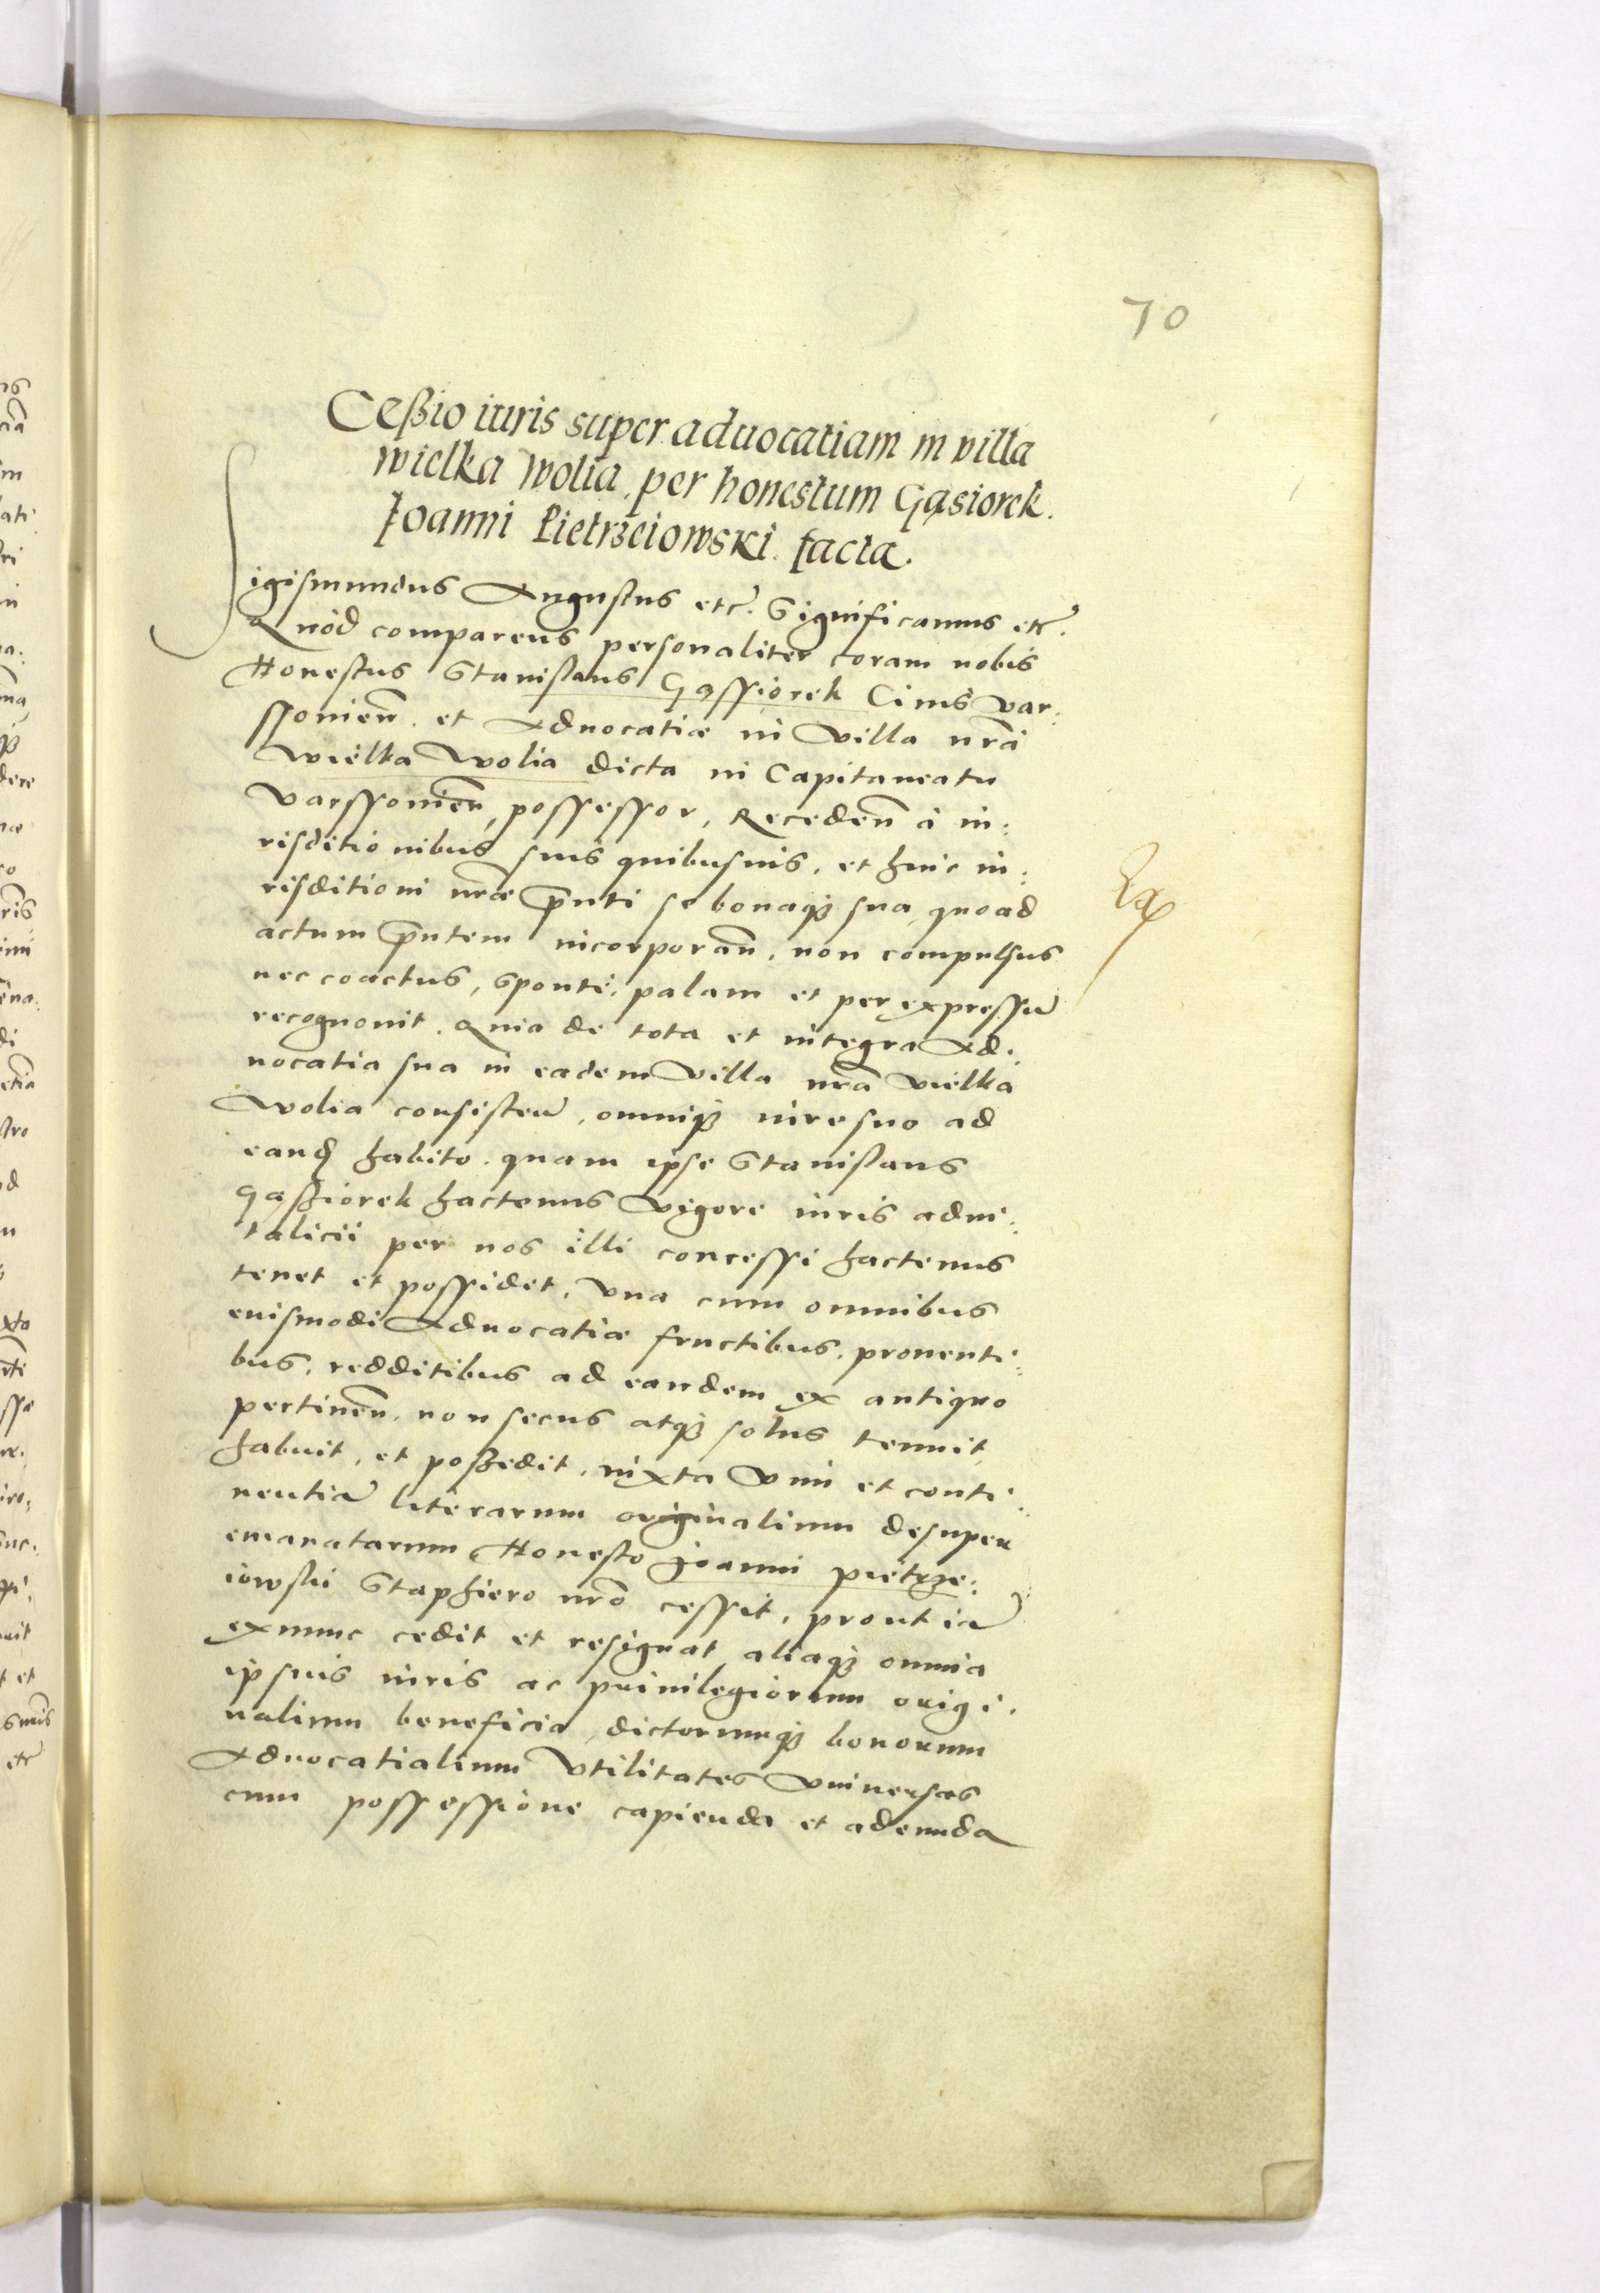 70
Ceßio iuris super aduocatiam in villa
wielka wolia per honestum Gąsiorek.
Ioanni Pietrzeiowski facta.
Sigismundus Augustus etc. Significamus etc.
Quod comparens personaliter coram nobis
Honestus Stanislaus Gąssiorek Ciuis var:
ssouien. et Aduocatiæ in villa nrã
wielka wolia dicta in Capitaneatu
varssouien, possessor, Receden à iu:
risditionibus suis quibusuis, et huic iu:
risditioni nræ pñti se bonaqȝ sua quoad
actum pñtem incorporañ, non compulsus
nec coactus, sponte, palam et per expressũ
recognouit. Quia de tota et integra Ad:
uocatia sua in eadem villa nrã wielka
wolia consisteñ, omniqȝ iure suo ad
eand habito. quam ipse Stanislaus
Gąßiorek hactenus vigore iuris adui:
talicii per nos illi concessi hactenus
tenet et possidet, vna cum omnibus
euismodi Aduocatiæ fructibus, prouenti:
bus, redditibus ad eandem ex antiquo
pertineñ, non secus atqȝ solus tenuit
habuit, et poßedit, iuxta vim et conti:
nentiã literarum originalium desuper
emanatarum, Honesto Joanni pietrze:
iowski Staphiero nrõ cessit, prout iã
exnunc cedit et resignat, aliaqȝ omnia
ipsius iuris ac priuilegiorum origi:
nalium beneficia, dictorumqȝ bonorum
Aduocatialium vtilitates vniuersas
cum possessione capienda et adeunda